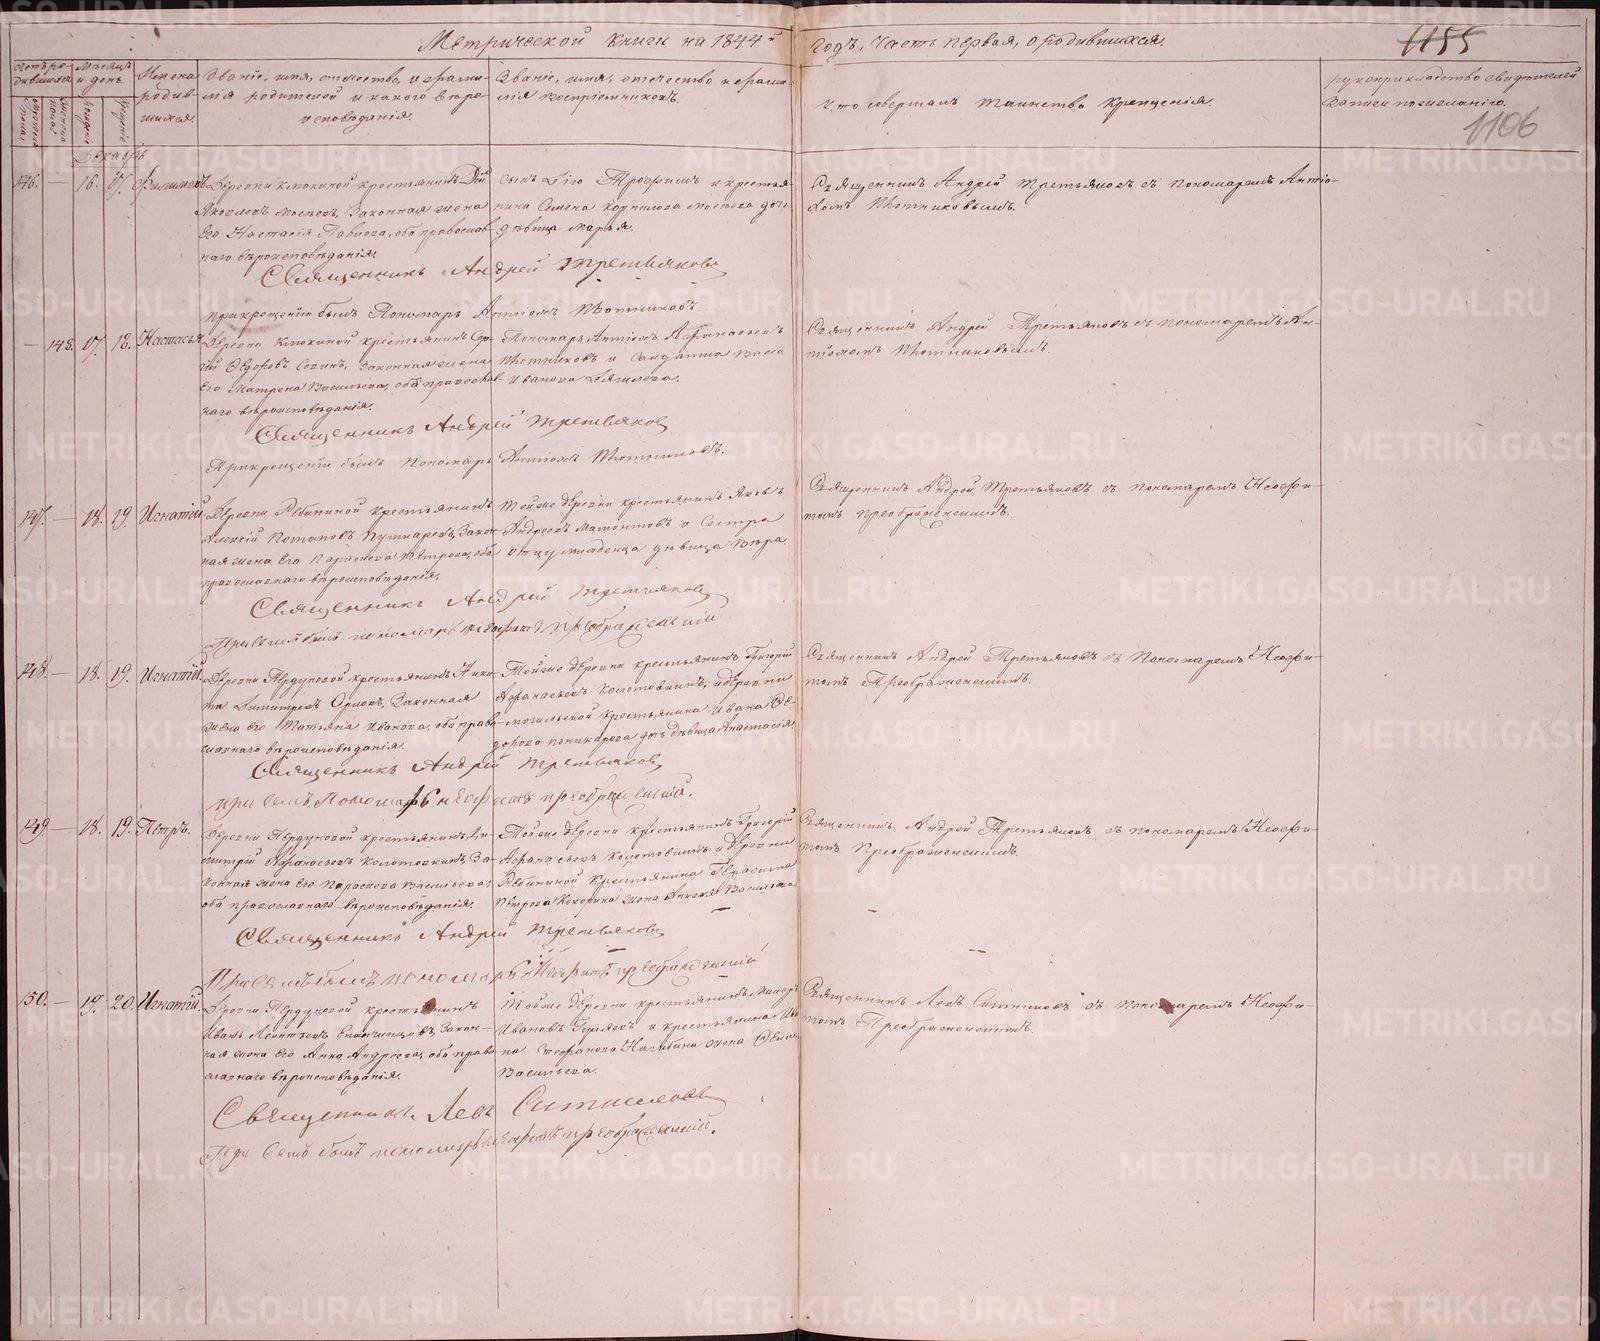 Метрической книги на 1844й годъ, часть первая, о родившихся.
1155
1106
Счетъ родившихся
Мѣсяцъ и день
Имена родившихся.
Званіе, имя, отчество, и фамилія родителей и какого вѣроисповѣданія.
Званіе, имя, отчество и фамилія воспріемниковъ.
Кто совершалъ таинство Крещенія.
Рукоприкладство свидѣтелей записи по желанію.
Декабрь
146. — 16. 17. Филимонъ
Деревни Клюкиной крестьянинъ
Яковлевъ Мосѣевъ, Законная жена
Его Настасія Павлова, оба православнаго вѣроисповѣданія.
сынъ Его Трофимъ и крестьянина Семена Корнилова Мосѣева дочь
дѣвица Марья.
Священникъ Андрей Третьяковъ съ пономаремъ Антіохомъ Плотниковымъ.
Священникъ Андрей Третьяковъ
При крещеніи былъ Пономарь Антіохъ Плотниковъ.
— 148. 17. 18. Настасья
Деревни Клюкиной крестьянинъ Сергѣй Ѳедоровъ
Законная жена
Его Матрена Васильева, оба православнаго вѣроисповѣданія.
Пономарь Антіохъ
Плотниковъ и Солдатка
Иванова
Священникъ Андрей Третьяковъ съ пономаремъ Антіохомъ Плотниковымъ.
Священникъ Андрей Третьяковъ
При крещеніи былъ Пономарь Антіохъ Плотниковъ.
147. — 18. 19 Игнатій
Деревни Рѣбининой крестьянинъ
Алексій Потаповъ Пушкаревъ, Законная жена Его Парасковья Петрова, оба
православнаго вѣроисповѣданія.
Тойже деревни крестьянинъ Яковъ
Андреевъ Мамонтовъ и Сестра
отцу младенца дѣвица Вѣра
Священникъ Андрей Третьяковъ съ пономаремъ Неофитомъ Преображенскимъ.
Священникъ Андрей Третьяковъ
При семъ былъ пономарь Неофитъ Преображенскій
148. — 18. 19. Игнатій
Деревни Пердуновой крестьянинъ Никита Димитріевъ Орловъ, Законная
жена его Татьяна Иванова, оба православнаго вѣроисповѣданія.
Тойже деревни крестьянинъ Григорій
Афанасьевъ Колотовкинъ, и деревни
Могильской крестьянина Ивана Ѳедорова Понкарова дочь дѣвица Анастасія.
Священникъ Андрей Третьяковъ съ Пономаремъ Неофитомъ Преображенскимъ.
Священникъ Андрей Третьяковъ
При семъ Пономарь Неофитъ Преображенскій.
149 — 18. 19. Петръ.
Деревни Пердуновой крестьянинъ Димитрій Афанасьевъ Колотовкинъ, Законная жена его Парасковья Васильева,
оба православнаго вѣроисповѣданія.
Тойже деревни крестьянинъ Григорій
Афанасьевъ Колотовкинъ и деревни
Рѣбининой крестьянина Герасима
Петрова Кокорина жена Васильева
Священникъ Андрей Третьяковъ съ пономаремъ Неофитомъ Преображенскимъ.
Священникъ Андрей Третьяковъ
При семъ былъ пономарь Неофитъ Преображенскій
150. — 19. 20. Игнатій.
Деревни Пердуновой крестьянинъ
Иванъ Леонтьевъ Законная жена Его Анна Андреева, оба православнаго вѣроисповѣданія.
Тойже деревни крестьянинъ
Ивановъ Гуляевъ и крестьянина Ивана Стефанова Нагибина жена
Васильева.
Священникъ Левъ Ситниковъ съ Пономаремъ Неофитомъ Преображенскимъ.
Священникъ Левъ Ситниковъ
При семъ былъ пономарь Неофитъ Преображенскій.
METRIKI.GASO-URAL.RU